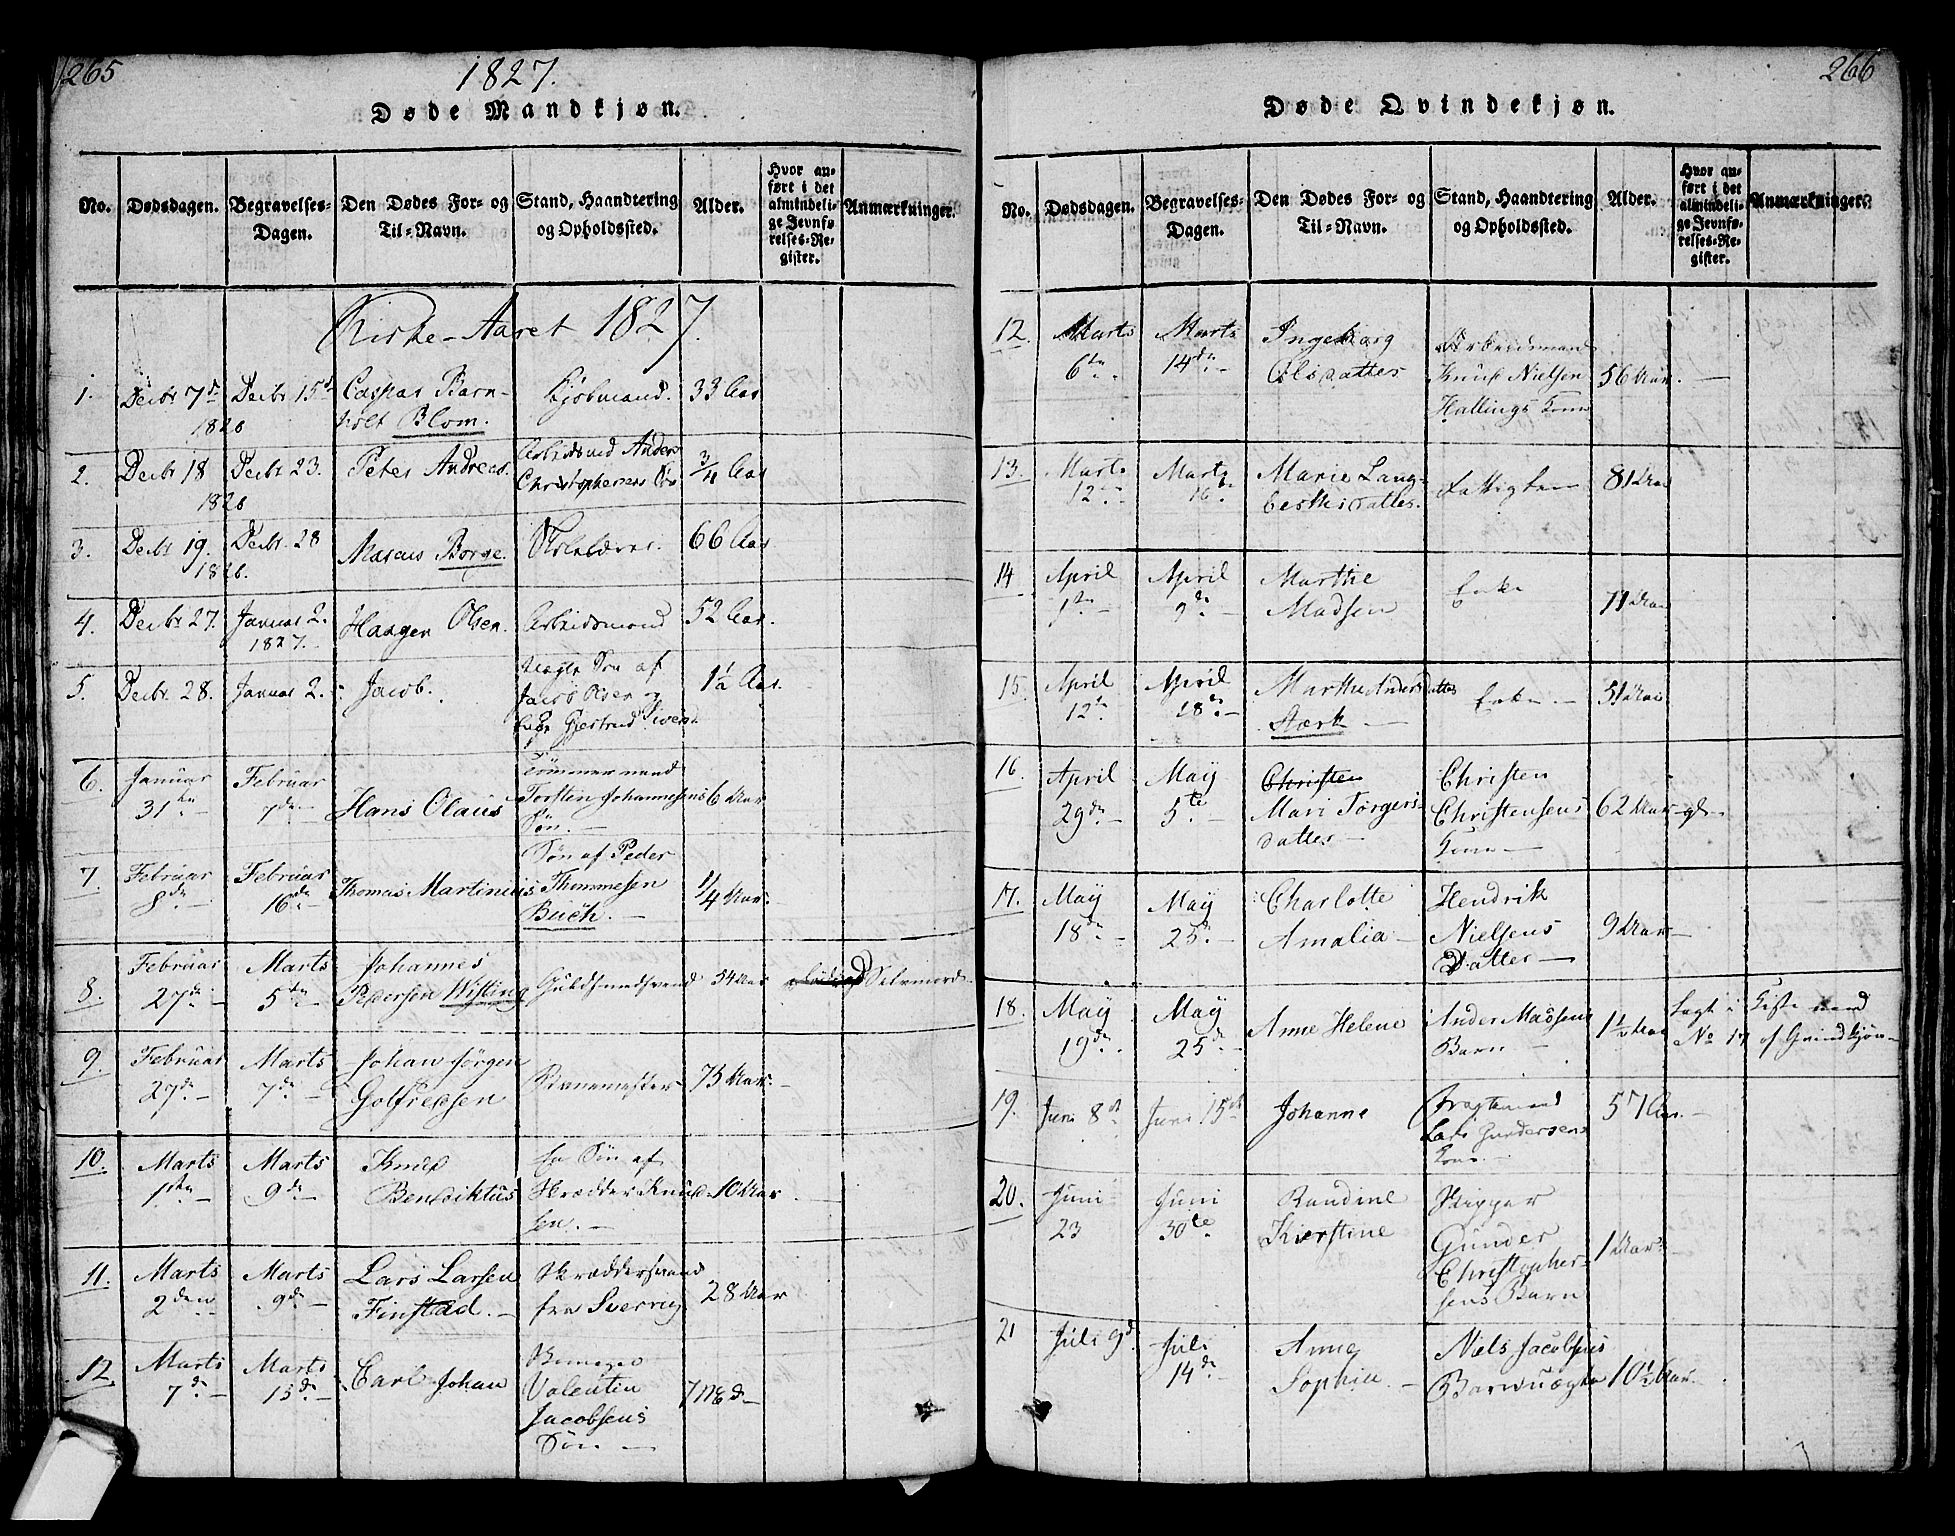 265
1827.
Døde Mandkjøn.
No. Dødsdagen. Begravelses-Dagen. Den Dødes For- og Til-Navn. Stand, Haandtering og Opholdssted. Alder. Hvor anført i det almindelige Jevnførelses-Register. Anmærkninger.
Kirke-Aaret 1827.
1. Decbr 7d 1826 Decbr 15d Caspar Barn-
holt Blom. Kjøbmand. 33 Aar
2. Decbr 18 1826 Decbr 23. Peter Andreas. Arbeidsmd Anders
Christophersens Søn 3/4 Aar
3. Decbr 19. 1826. Decbr. 28 Marcus Borge. Skolelærer. 66 Aar
4. Decbr 27. Januar 2. 1827. Haagen Olsen. Arbeidsmand 52 Aar.
5. Decbr. 28. Januar 2. Jacob. Uægte Søn af
Jacob Olsen og
Gjertrud Sivers 1½ Aar.
6. Januar 31te Februar 7de Hans Olaus Tømmermand
Torsten Johannesens
Søn. 6 Aar
7. Februar 8de Februar 16de Thomas Martinius Søn af Peder
Thommesen
Buch. 1/4 Aar.
8. Februar 27de Marts 5te Johannes
Pedersen Wisling Guldsmedsvend 54 Aar Selvmord
9. Februar 27de Marts 7de Johan Jørgen
Golfredsen 75 Aar.
10. Marts 1ste Marts 9de Knud
Benediktus En Søn af
Skrædder Knud-
sen. 10 Aar
11. Marts 2den Marts 9de Lars Larsen
Finstad. Skræddersvend
fra Sverrig 28 Aar
12. Marts 7de Marts 15de Carl Johan
Valentin
Jacobsens
Søn 7 Md
266
Døde Qvindekjøn.
No. Dødsdagen. Begravelses-Dagen. Den Dødes For- og Til-Navn. Stand, Haandtering og Opholdssted. Alder. Hvor anført i det almindelige Jevnførelses-Register. Anmærkninger.
12. Marts 6te Marts 14de Ingeborg
Olsdatter Arbeidsmand
Knud Nielsen
Hallings Kone 56 Aar.
13. Marts 12te Marts 16de Marie Lang-
datter. Fattiglem 81 Aar
14 April 1te April 9de Marthe
Madsen Enke 71 Aar
15. April 12te April 18de Marthe Andersdatter
Stærk Enke 51 Aar
16. April 29de May 5te Christen
Mari Torgers-
datter Christen
Christensens
Kone 62 Aar
17. May 18de May 25de Charlotte
Amalia Hendrik
Nielsens
Datter 9 Aar
18. May 19de May 25de Anne Helene Ander Madsens
Barn Aar Lagt i Kiste med
No 17 af Qvindkjøn
19. Juni 8de Juni 15de Johanne Fragtemand
Lars Gundersens
Kone 57 Aar.
20. Juni 23 Juni 30te Randine
Kirstine Skipper
Gunder
Christopher-
sens Barn 1 Aar
21 Juli 9d Juli 14de Anne
Sophia Niels Jacobsens
Barn uægte 10½ Aar.